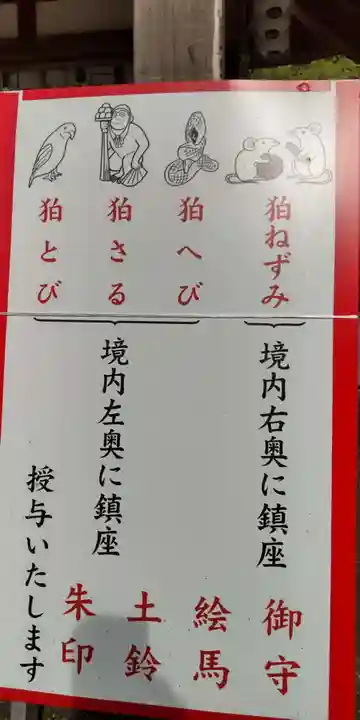 狛ねずみ
狛へび
狛さる
狛とび
境内右奥に鎮座
境内左奥に鎮座
御守
絵馬
土鈴
朱印
授与いたします